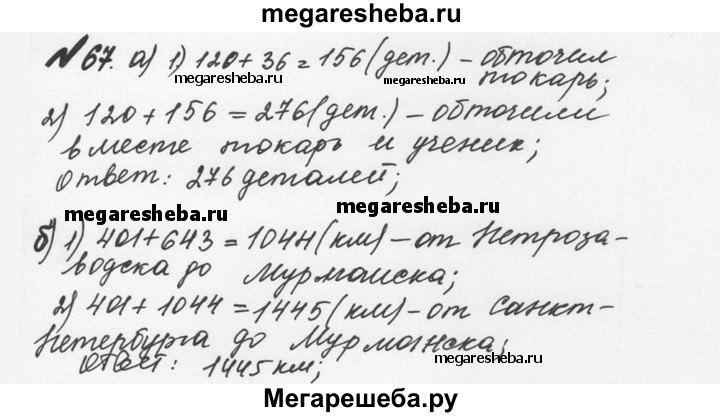 megaresheba.ru
№67. а) 1) 120+36=156(дет.) - обточил
megaresheba.ru megaresheba.ru токарь;
2) 120+156=276(дет.) - обточили
вместе токарь и ученик;
Ответ: 276 деталей;
megaresheba.ru megaresheba.ru
б) 1) 401+643=1044(км) - от Петроза-
водска до Мурманска;
2) 401+1044=1445(км) - от Санкт-
Петербурга до Мурманска;
Ответ: 1445км; megaresheba.ru
Мегарешеба.ру